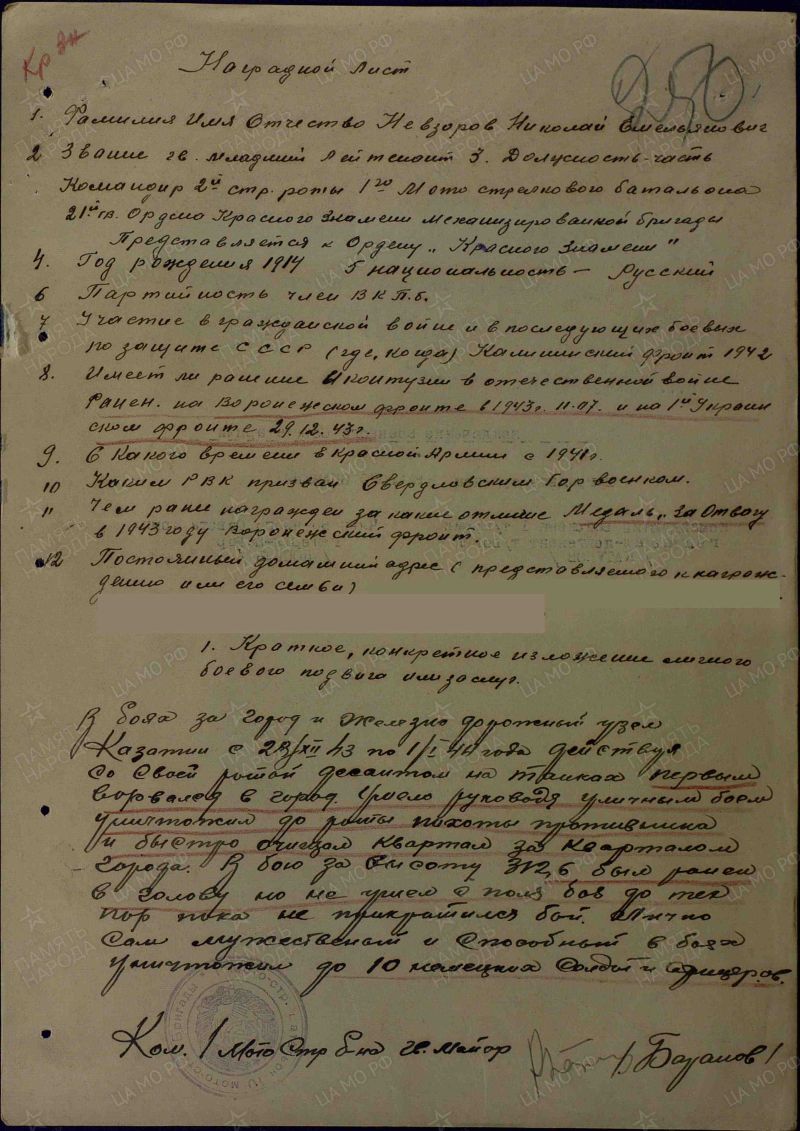 Кр Зн
250
Наградной лист
1. Фамилия Имя Отчество Невзоров Николай Емельянович
2 Звание гв. младший лейтенант 3. Должность-часть
Командир 2й стр. роты 1го Мото стрелкового батальона
21й гв. Ордена Красного Знамени механизированной бригады
Представляется к Ордену „Красного Знамени"
4. Год рождения 1914 5 национальность - Русский
6 Партийность член ВКП.б.
7 Участие в гражданской войне и в последующих боевых
по защите СССР (где, когда) Калининский фронт 1942
8. Имеет ли ранение и контузии в отечественной войне
Ранен. на Воронежском фронте в 1943г. и на 1й Украин
ском фронте 29.12.43г.
9. С Какого времени в красной Армии с 1941г.
10 Каким РВК призван Свердловским Гор военком.
11 Чем ранее награжден за какие отличие Медаль „За Отвагу
в 1943 году Воронежский фронт.
12 Постоянный домашний адрес (представляемого к награж-
дению или его семьи)
1. Краткое, конкретное изложение личного
боевого подвига или заслуг.
В боях за город и железно дорожный узел
Казатин с 28/XII 43 по 1/I 44 года действуя
со своей ротой десантом на танках первым
ворвался в город. Умело руководя уличным боем
уничтожил до роты пехоты противника
и быстро очищал квартал за кварталом
города. В бою за высоту 312,6 был ранен
в голову но не ушел с поля боя до тех
пор пока не прикратился бой. Лично
сам мужественный и способный в боях
уничтожил до 10 немецких солдат и офицеров.
Ком. 1 Мото Стр б-на гв. Майор /Базанов/